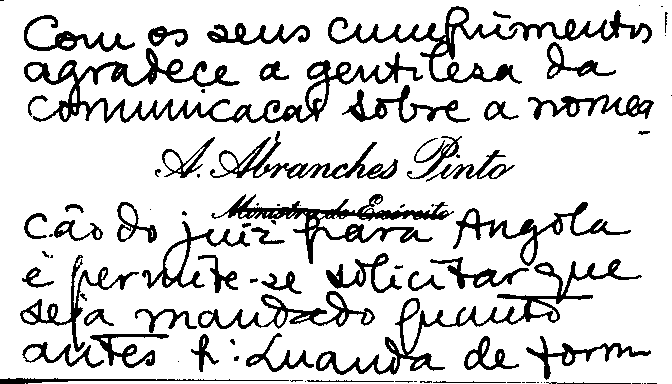 Com os seus cumprimentos
agradece a gentilesa da
comunicacao sobre a nomea
A. Abranches Pinto
Ministro do Exército
cão do juiz para Angola
e permite-se solicitar que
seja mandado quanto
antes p: Luanda de form